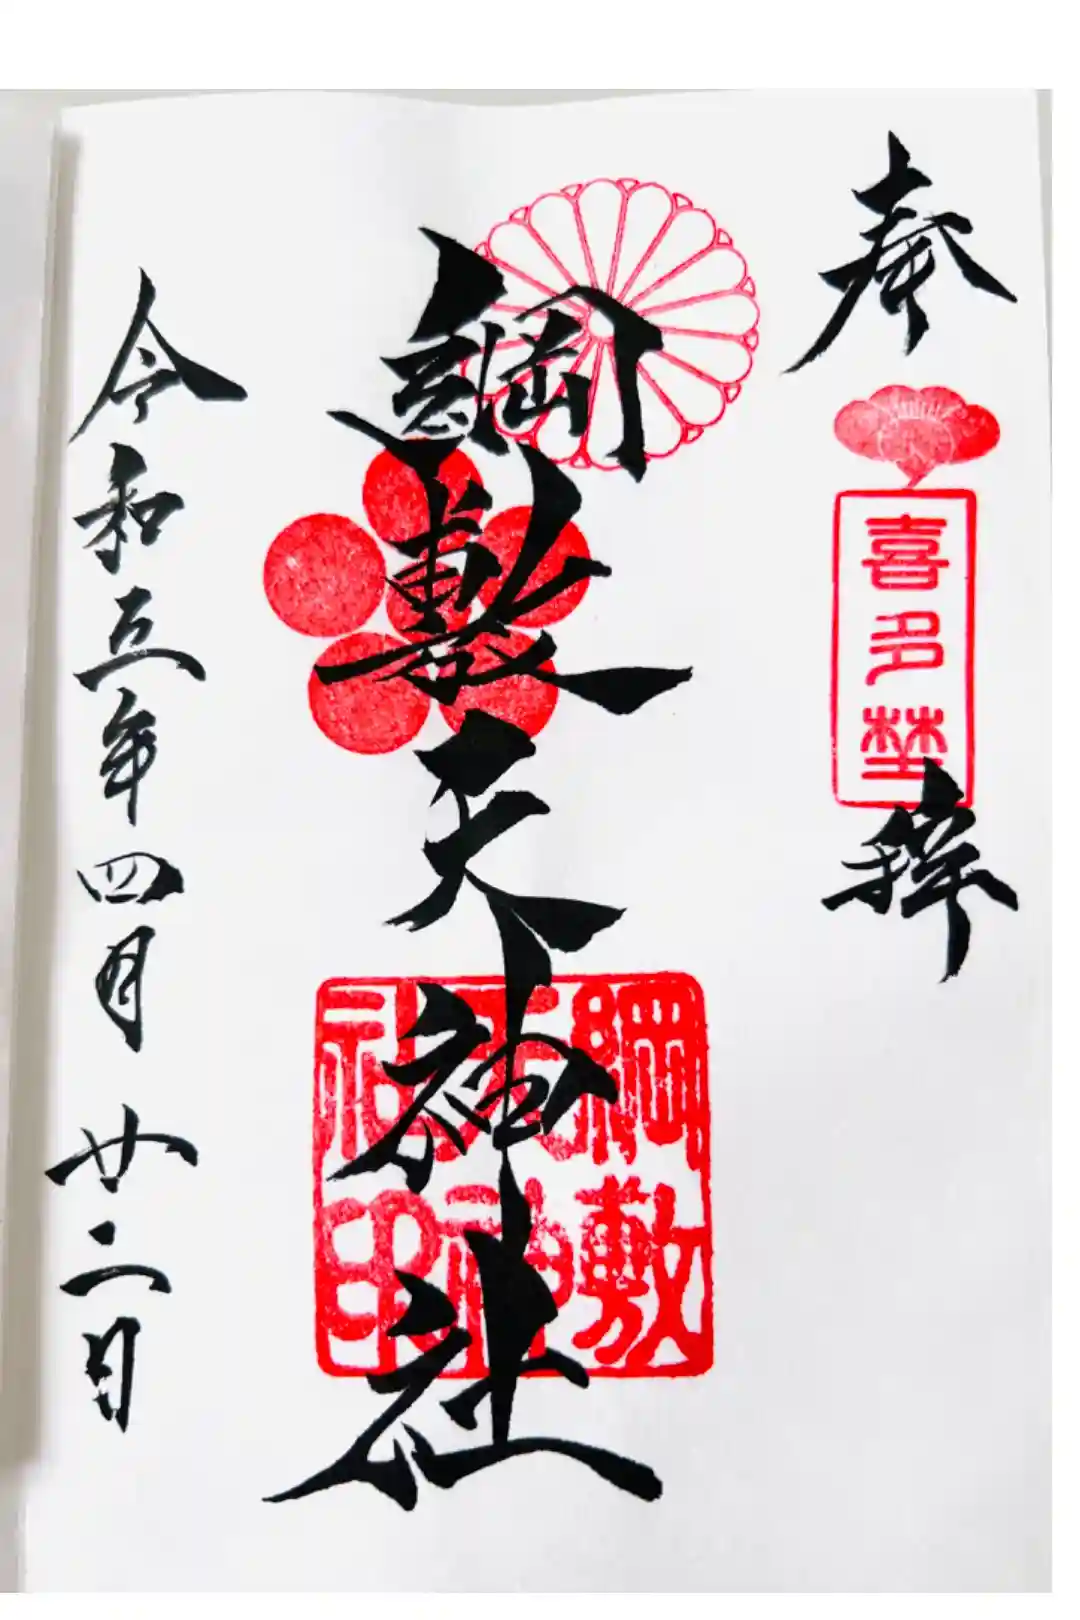 奉拝
喜多埜
綱敷天神社
綱敷
天神
社印
令和五年四月廿二日